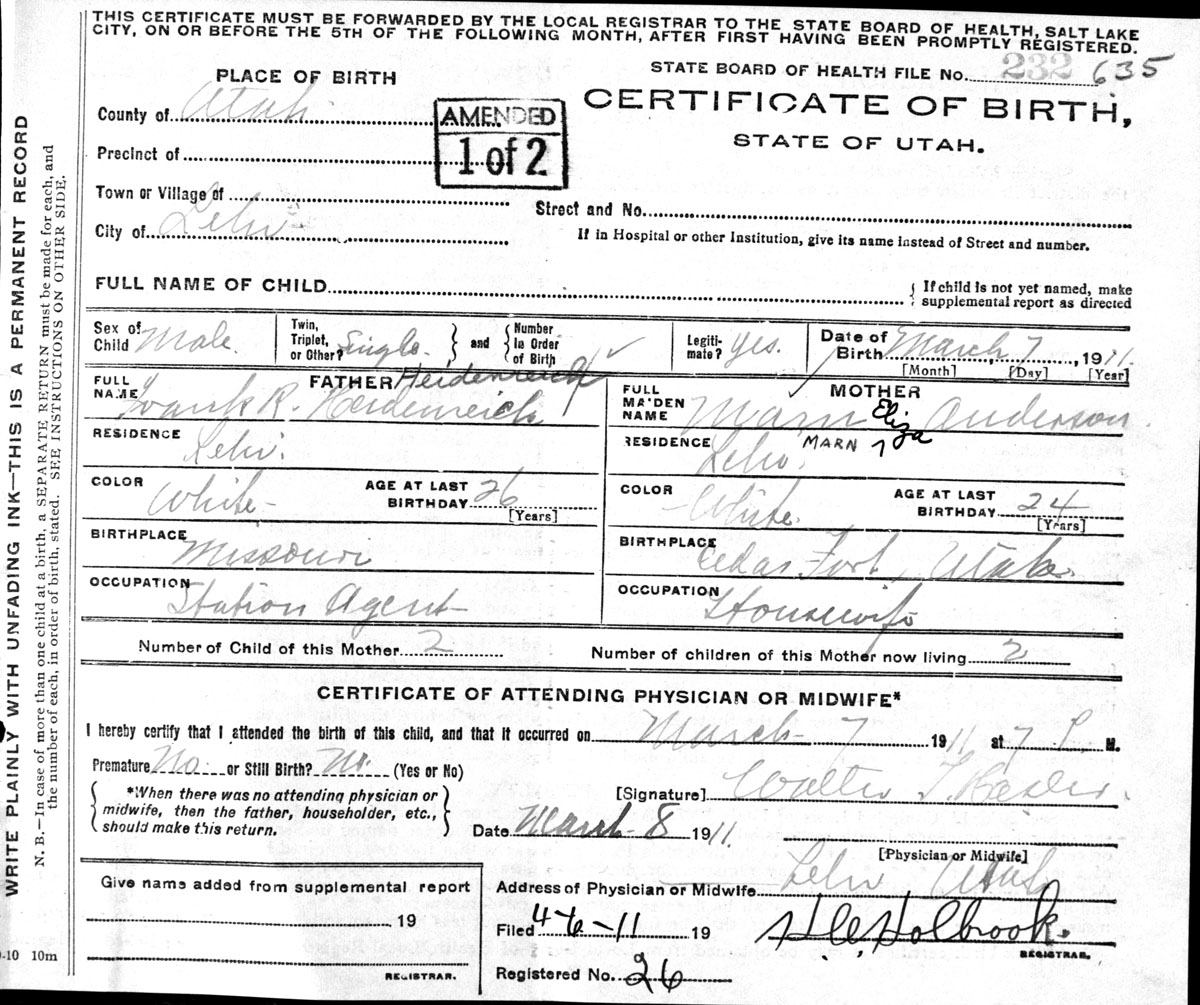 THIS CERTIFICATE MUST BE FORWARDED BY THE LOCAL REGISTRAR TO THE STATE BOARD OF HEALTH, SALT LAKE
CITY, ON OR BEFORE THE 5TH OF THE FOLLOWING MONTH, AFTER FIRST HAVING BEEN PROMPTLY REGISTERED.
WRITE PLAINLY WITH UNFADING INK—THIS IS A PERMANENT RECORD
N. B.—In case of more than one child at a birth, a SEPARATE RETURN must be made for each, and
the number of each, in order of birth, stated. SEE INSTRUCTIONS ON OTHER SIDE.
PLACE OF BIRTH
STATE BOARD OF HEALTH FILE No. 232 635
County of Utah
AMENDED
1 of 2
CERTIFICATE OF BIRTH,
STATE OF UTAH.
Precinct of
Town or Village of
Street and No.
City of Lehi
If in Hospital or other Institution, give its name instead of Street and number.
FULL NAME OF CHILD
{ If child is not yet named, make
supplemental report as directed
Sex of Child Male.
Twin, Triplet, or Other? Single.
and
Number In Order of Birth ✓
Legitimate? Yes.
Date of Birth March 7, 1911.
[Month] [Day] [Year]
FATHER Heidenreich
FULL NAME Frank R. Heidenreich
MOTHER
FULL MAIDEN NAME Marn Eliza Anderson.
RESIDENCE Lehi.
RESIDENCE MARN
Lehi.
COLOR White
AGE AT LAST BIRTHDAY 26
[Years]
COLOR White.
AGE AT LAST BIRTHDAY 24
[Years]
BIRTHPLACE Missouri
BIRTHPLACE Cedar Fort, Utah.
OCCUPATION Station Agent
OCCUPATION Housewife
Number of Child of this Mother 2
Number of children of this Mother now living 2
CERTIFICATE OF ATTENDING PHYSICIAN OR MIDWIFE*
I hereby certify that I attended the birth of this child, and that it occurred on March 7 1911, at 7 P. M.
Premature No. or Still Birth? No. (Yes or No)
*When there was no attending physician or
midwife, then the father, householder, etc.,
should make this return.
[Signature] Walter T.
Date March 8 1911.
[Physician or Midwife]
Give name added from supplemental report
Address of Physician or Midwife Lehi Utah
19
Filed 4-6-11 19
Holbrook.
REGISTRAR.
REGISTRAR.
Registered No. 26
-10 10m